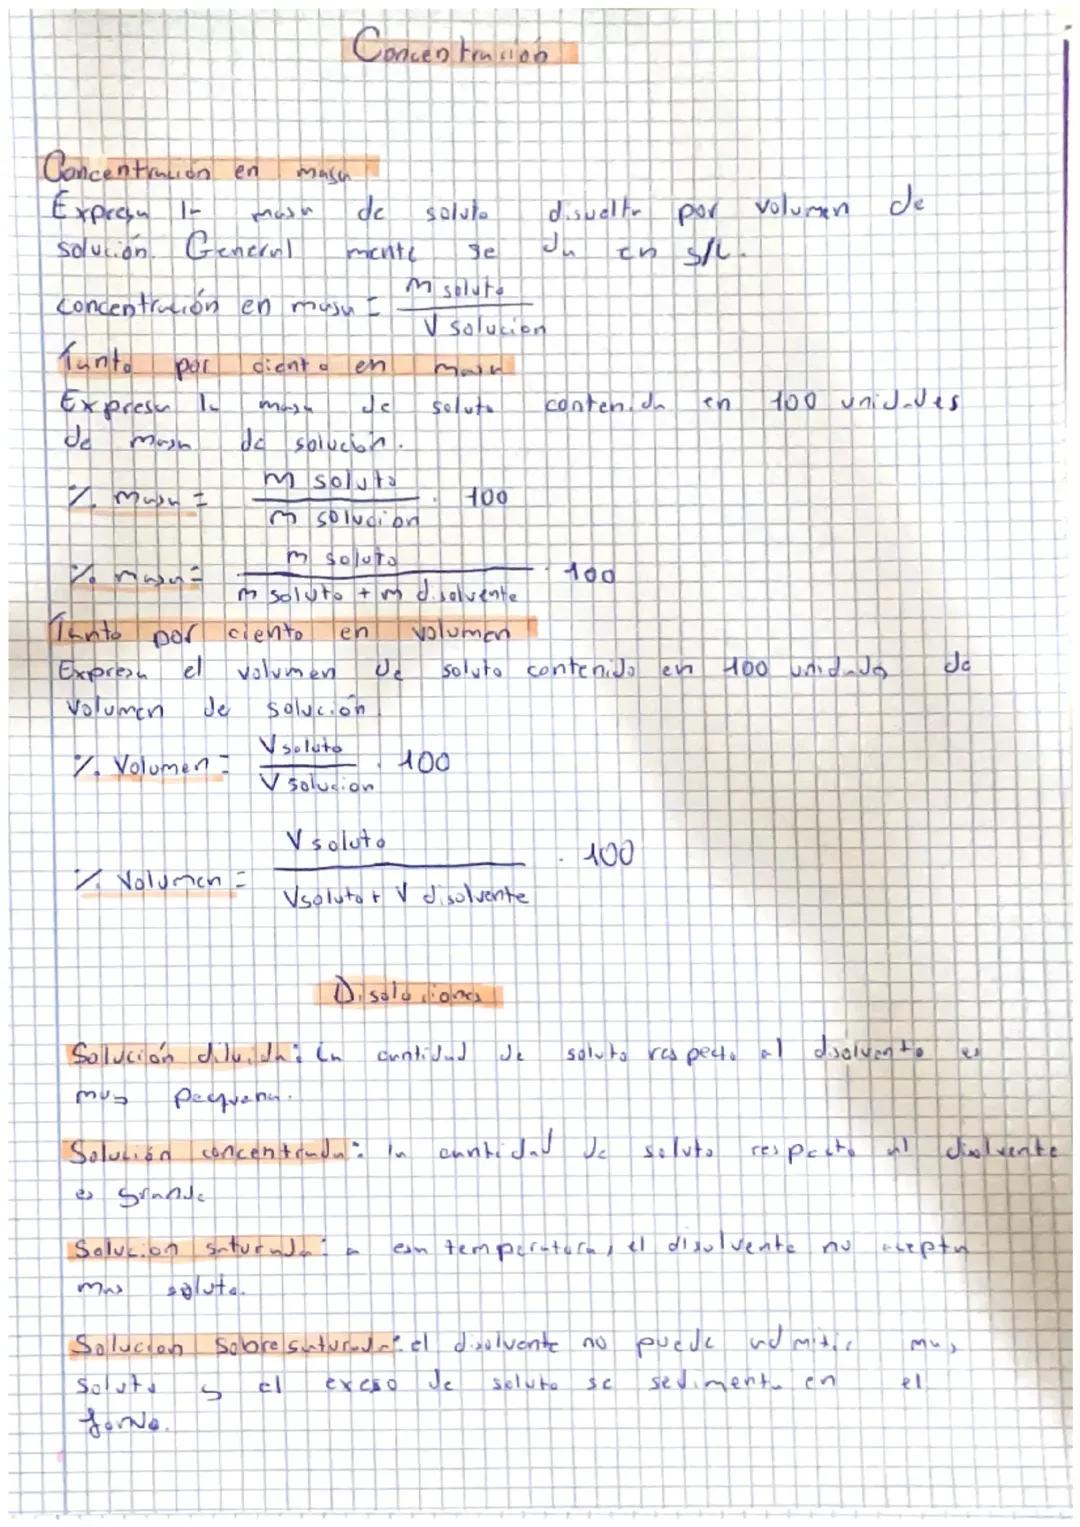 Concentración
Concentración en masa
Expresa la masa de soluto disuelta por volumen de
solución. Generalmente se da en g/L.
concentración en masa = m soluto / V solucion
Tanto por ciento en masa
Expresa la masa de soluto contenida en 100 unidades
de masa de solución.
% masa = m soluto / m solucion · 100
% masa = m soluto / m soluto + m disolvente · 100
Tanto por ciento en volumen
Expresa el volumen de soluto contenido en 100 unidades de
volumen de solución
% Volumen = V soluto / V solucion · 100
% Volumen = V soluto / V soluto + V disolvente · 100
Disoluciones
Solución diluida: la cantidad de soluto respecto al disolvente es
muy pequeña.
Solución concentrada: la cantidad de soluto respecto al disolvente
es grande
Solucion saturada: a esa temperatura, el disolvente no acepta
mas soluto.
Solucion Sobresaturada: el disolvente no puede admitir mas
soluto y el exceso de soluto se sedimenta en el
fondo.